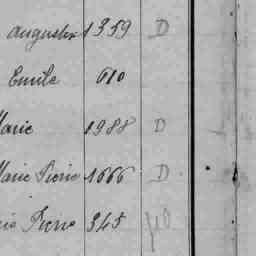 Auguster 1359 D
Emile 610
Marie 1988 D
Marie Pierre 1666 D
Pierre 345